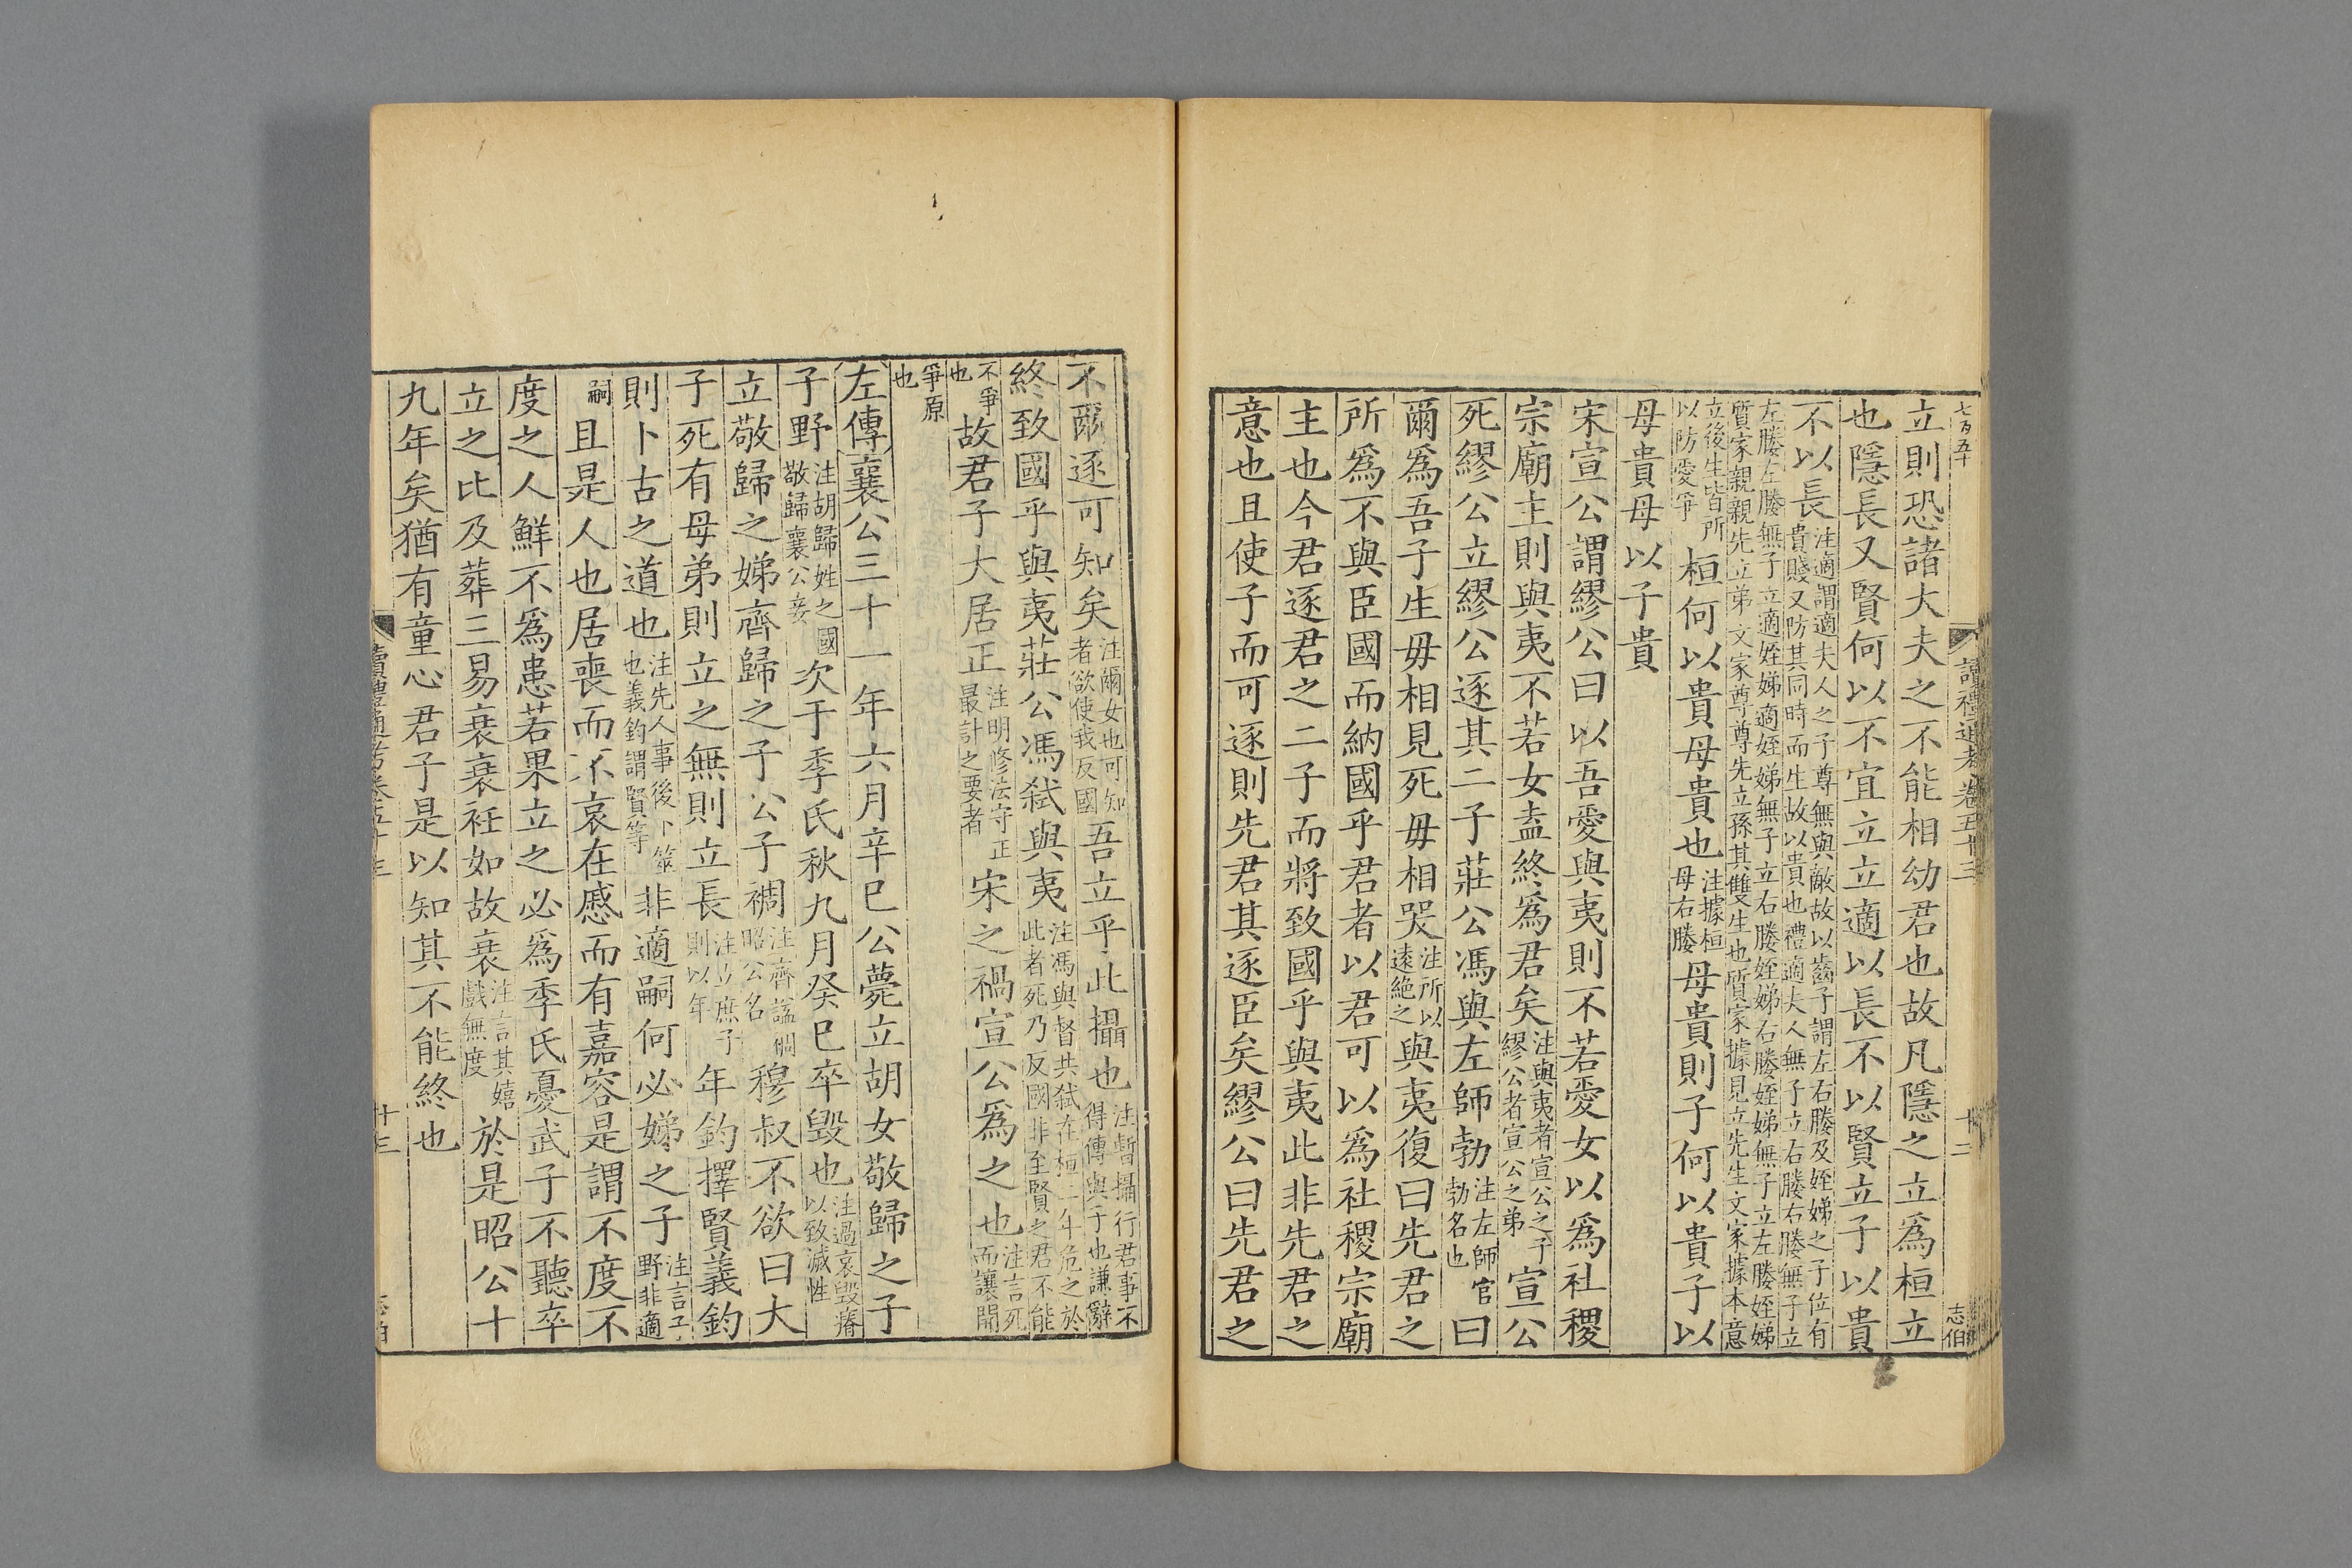 七百五十
讀禮通考卷五十三
十二
志伯
立則恐諸大夫之不能相幼君也故凡隱之立爲桓立
也隱長又賢何以不宜立立適以長不以賢立子以貴
不以長注適謂適夫人之子尊無與敵故以齒子謂左右媵及姪娣之子位有貴賤又防其同時而生故以貴也禮適夫人無子立右媵右媵無子立
左媵左媵無子立適姪娣適姪娣無子立右媵姪娣右媵姪娣無子立左媵姪娣質家親親先立弟文家尊尊先立孫其雙生也質家據見立先生文家據本意
立後生皆所以防愛爭桓何以貴母貴也注據桓母右媵母貴則子何以貴子以
母貴母以子貴
宋宣公謂繆公曰以吾愛與夷則不若愛女以爲社稷
宗廟主則與夷不若女盍終爲君矣注與夷者宣公之子繆公者宣公之弟宣公
死繆公立繆公逐其二子莊公馮與左師勃注左師官勃名也曰
爾爲吾子生毋相見死毋相哭注所以遠絶之與夷復曰先君之
所爲不與臣國而納國乎君者以君可以爲社稷宗廟
主也今君逐君之二子而將致國乎與夷此非先君之
意也且使子而可逐則先君其逐臣矣繆公曰先君之
不爾逐可知矣注爾女也可知者欲使我反國吾立乎此攝也注暫攝行君事不得傳與子也謙辭
終致國乎與夷莊公馮弑與夷注馮與督共弑在桓二年危之於此者死乃反國非至賢之君不能
不爭也故君子大居正注明修法守正最計之要者宋之禍宣公爲之也注言死而讓開
爭原也
左傳襄公三十一年六月辛巳公薨立胡女敬歸之子
子野注胡歸姓之國敬歸襄公妾次于季氏秋九月癸巳卒毁也注過哀毁瘠以致滅性
立敬歸之娣齊歸之子公子裯注齊謚裯昭公名穆叔不欲曰大
子死有母弟則立之無則立長注立庶子則以年年鈞擇賢義鈞
則卜古之道也注先人事後卜筮也義鈞謂賢等非適嗣何必娣之子注言子野非適
嗣且是人也居喪而不哀在慼而有嘉容是謂不度不
度之人鮮不爲患若果立之必爲季氏憂武子不聽卒
立之比及葬三易衰衰衽如故衰注言其嬉戲無度於是昭公十
九年矣猶有童心君子是以知其不能終也
讀禮通考卷五十三
十三
志伯